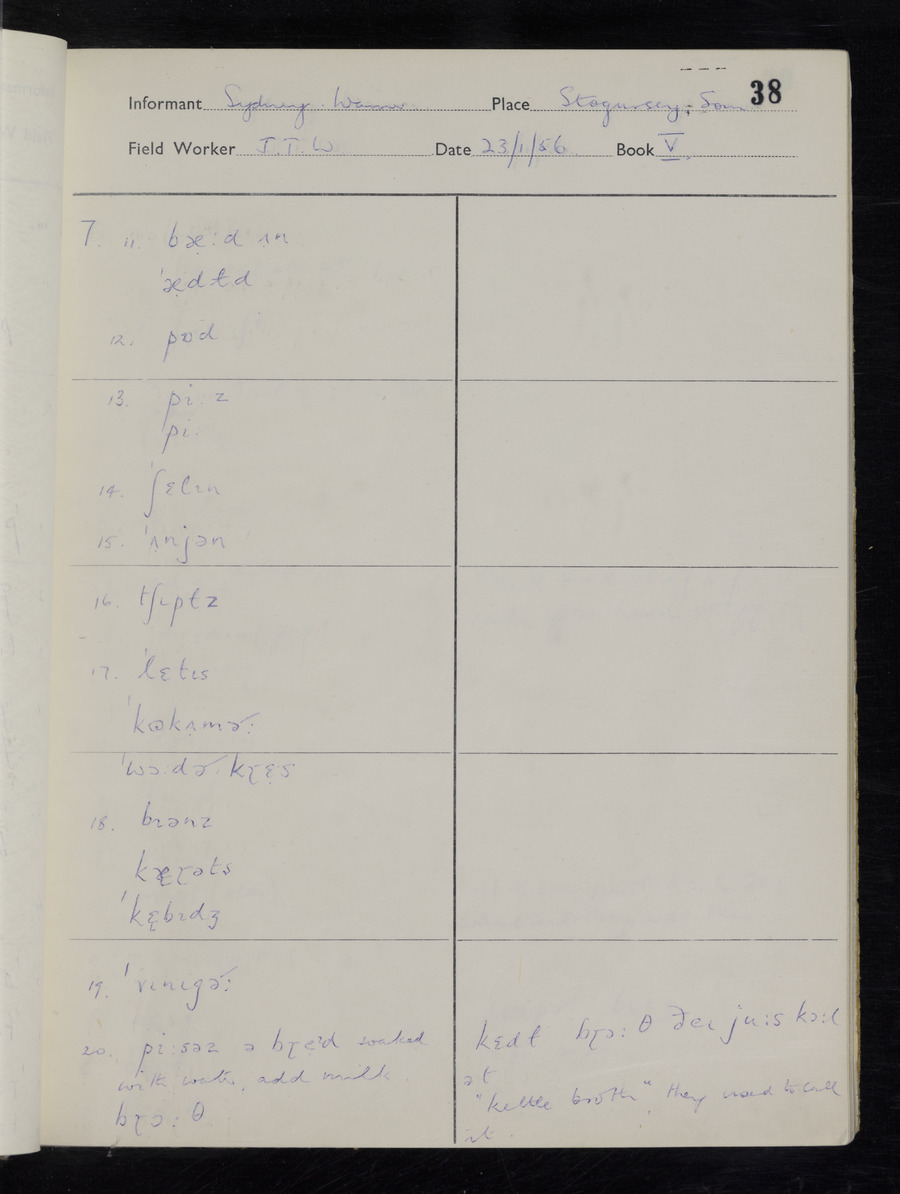 38
Informant Sydney Place Stogursey, Som
Field Worker J.T.W Date 23/1/56 Book V
7. 11. bæ̣:d ʌ̣n
ˈæ̣dɫd
12. pɒd
13. pi:z
pi:
14. ˈʃɛlɪn
15. ˈʌ̣njən
16. tʃɪpɫz
17. ˈlɛtɪs
ˈkɒkʌ̣mɚ:
ˈwɔ:dɚ kɽɛ̣s
18. bɪənz
kæɽəts
ˈkɛ̣bɪdʒ
19. ˈvɪnɪgɚ:
20. pi:səz ə bɽeɪd soaked
with water, add milk
bɽɔ:θ
kɛdɫ bɽɔ:θ ðeɪ ju:s kɔ:ɫ
ət
"kettle broth" they used to call
it.